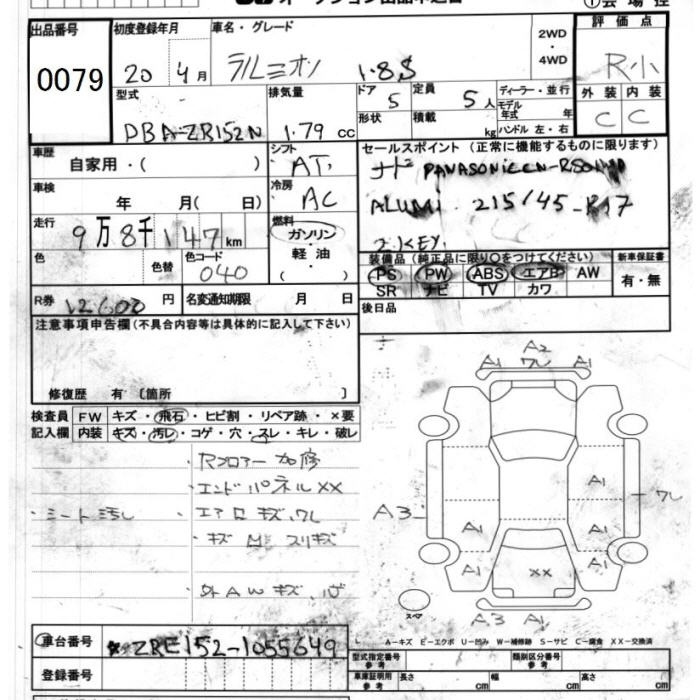 出品番号 初度登録年月 車名・グレード 評価点
0079 20年 4月 1.8S 2WD・4WD R小
型式 排気量 ドア 5 定員 5人 ディーラー・並行 外装 内装
DBA-ZR152N 1.79cc 形状 積載 kg モデル年式 年 ハンドル 左・右 C C
車歴 シフト セールスポイント(正常に機能するものに限ります)
自家用・( ) AT
車検 冷房 ALUMi 215/45-R17
年 月( 日) AC 2.KEY.
走行 燃料
9万8千147km ガソリン・軽油・( )
装備品(純正品に限り○をつけてください) 新車保証書
PS PW ABS エアB AW 有・無
色 色替 色コード 040
SR ナビ TV カワ
R券 12600円 名変通知期限 月 日 後日品
注意事項申告欄(不具合内容等は具体的に記入して下さい)
修復歴 有〔箇所 〕
検査員 FW キズ・飛石・ヒビ割・リペア跡・×要
記入欄 内装 キズ・汚レ・コゲ・穴・スレ・キレ・破レ
・エンドパネルXX
・シート汚レ ・エアロキズ,ワレ
A2
A1 ワレ A1
A1 ワレ
A3 A1 A1
A1 A1
XX
スペア
A3 A1
A-キズ E-エクボ U-凹み W-補修跡 S-サビ C-腐食 XX-交換済
車台番号 ZRE152-1055649
型式指定番号 参考 類別区分番号 参考
登録番号
車庫証明用 参考 長さ cm 幅 cm 高さ cm